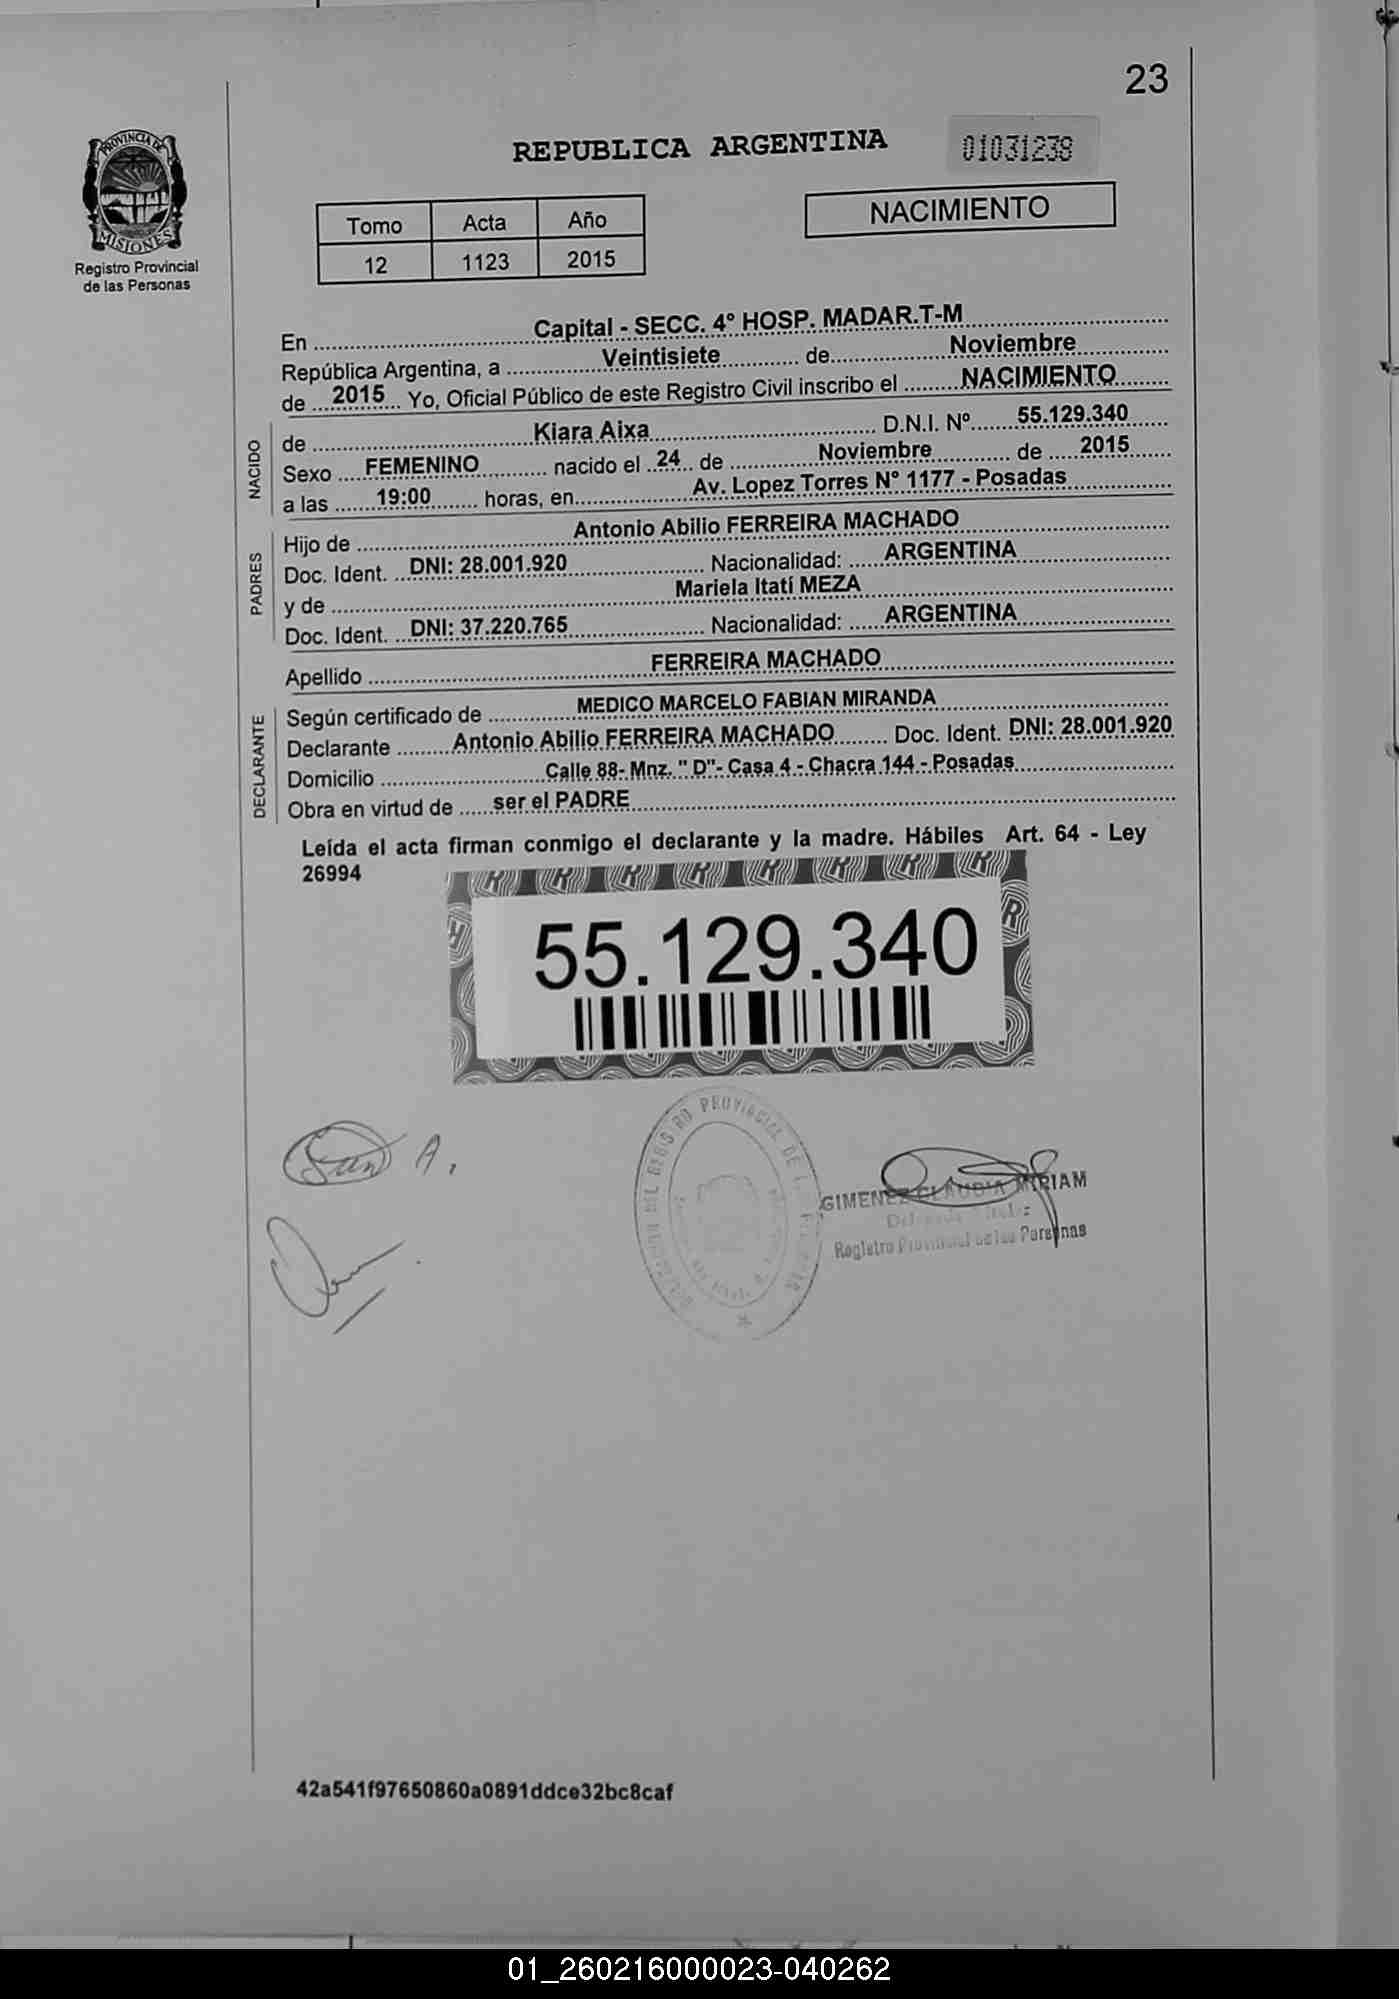 23
PROVINCIA DE
MISIONES
Registro Provincial
de las Personas
REPUBLICA ARGENTINA
01031238
Tomo Acta Año
12 1123 2015
NACIMIENTO
En Capital - SECC. 4° HOSP. MADAR.T-M
República Argentina, a Veintisiete de Noviembre
de 2015 Yo, Oficial Público de este Registro Civil inscribo el NACIMIENTO
NACIDO
de Kiara Aixa D.N.I. Nº 55.129.340
Sexo FEMENINO nacido el 24 de Noviembre de 2015
a las 19:00 horas, en Av. Lopez Torres N° 1177 - Posadas
PADRES
Hijo de Antonio Abilio FERREIRA MACHADO
Doc. Ident. DNI: 28.001.920 Nacionalidad: ARGENTINA
y de Mariela Itatí MEZA
Doc. Ident. DNI: 37.220.765 Nacionalidad: ARGENTINA
Apellido FERREIRA MACHADO
DECLARANTE
Según certificado de MEDICO MARCELO FABIAN MIRANDA
Declarante Antonio Abilio FERREIRA MACHADO Doc. Ident. DNI: 28.001.920
Domicilio Calle 88- Mnz. " D"- Casa 4 - Chacra 144 - Posadas
Obra en virtud de ser el PADRE
Leída el acta firman conmigo el declarante y la madre. Hábiles Art. 64 - Ley
26994
55.129.340
PROVINCIAL DE
GIMENEZ CLAUDIA MIRIAM
Registro Provincial de las Personas
42a541f97650860a0891ddce32bc8caf
01_260216000023-040262